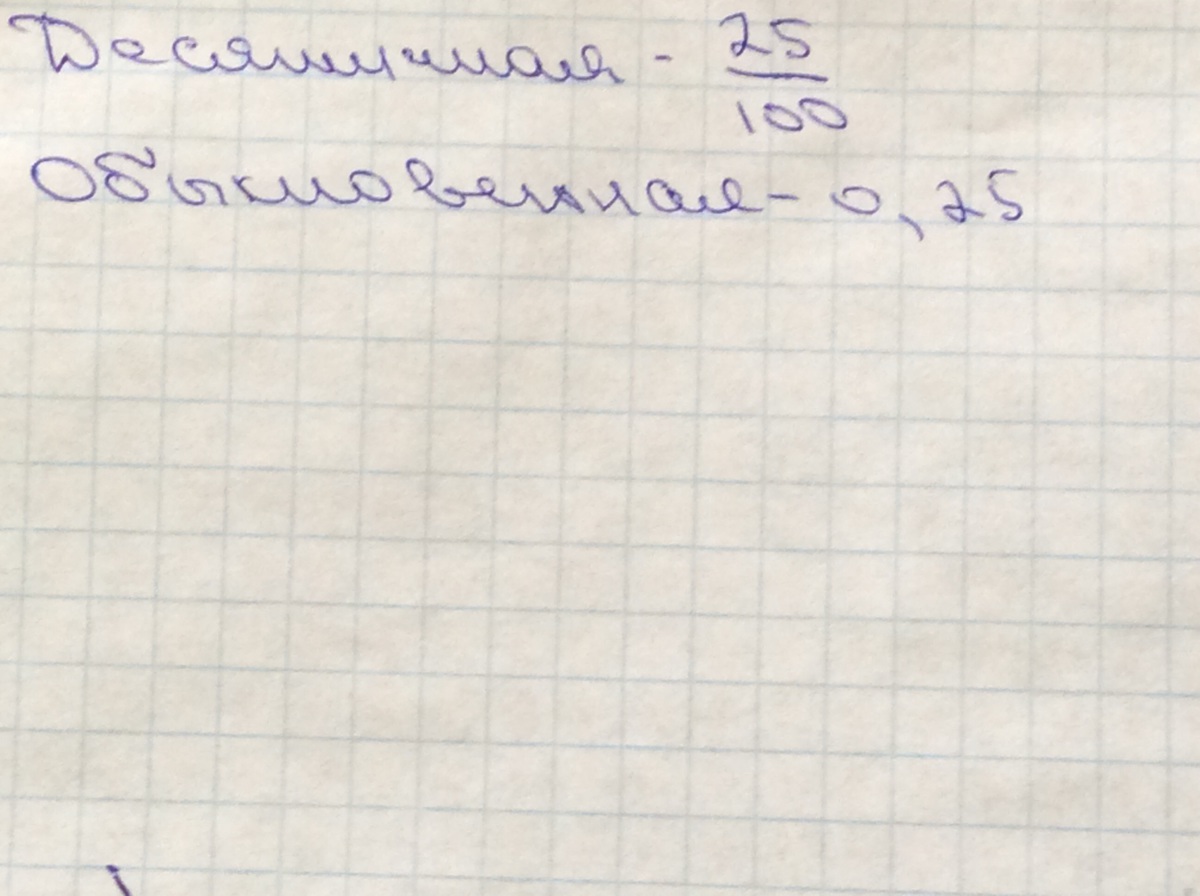 Десятичная - 25/100
Обыкновенная - 0,25